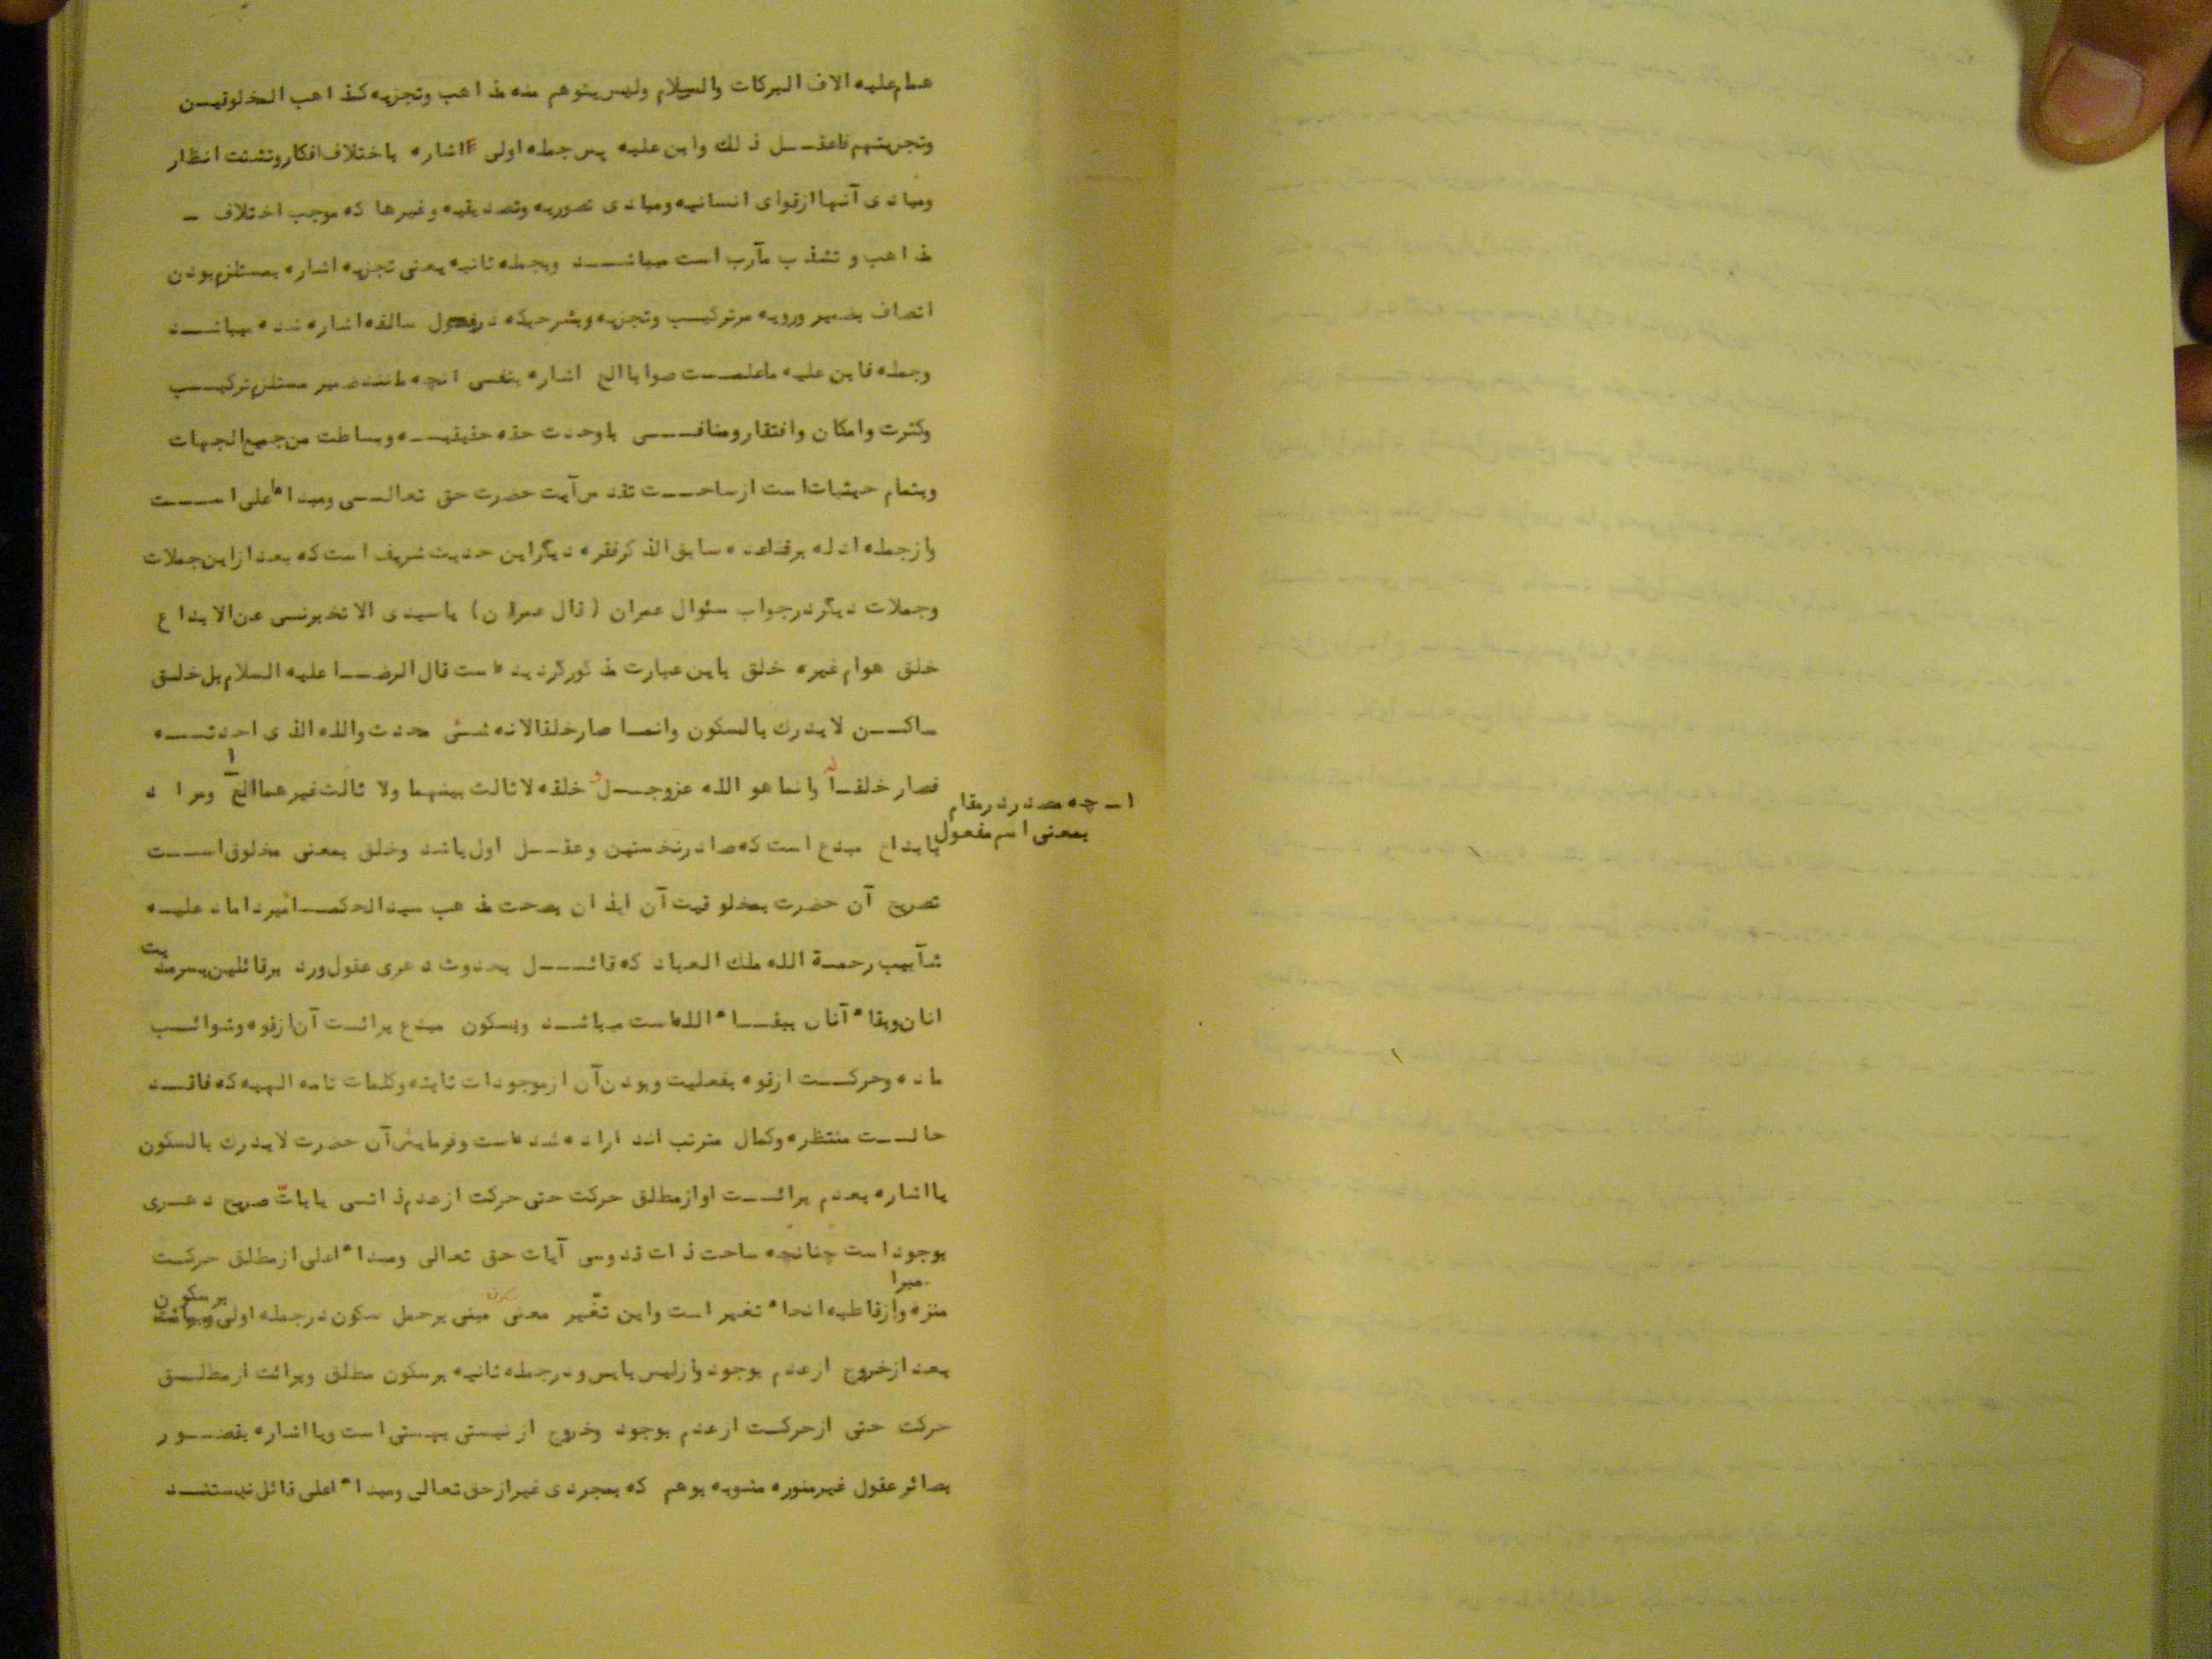 همام علیه الاف البرکات والسلام ولیس یتوهم منه مذاهب وتجزیه کمذاهب المخلوقیـن
وتجزیتهم فاعقـــل ذلك وابن علیه پس جمله اولی اشاره باختلاف افکار وتشتت انظار
ومبادی آنها ازقوای انسانیه ومبادی تصوریه وتصدیقیه وغیرها که موجب اختلاف ـ
مذاهب و تشذب مآرب است میباشـــد وبجمله ثانیه یعنی تجزیه اشاره بمستلزم بودن
اتصاف بضمیر ورویه مرترکیـب وتجزیه وبشرحیکه درفصول سالفه اشاره شده میباشـــد
وجمله فابن علیه ماعلمـــت صوابا الخ اشاره بنفی انچه مانند ضمیر مستلزم ترکیــب
وکثرت وامکان وافتقار ومنافــــی باوحدت حقه حقیقیـــه وبساطت من جمیع الجهات
وبتمام حیثیات است ازساحـــت تقدس آیت حضرت حق تعالــی ومبداء اعلی اســـت
وازجمله ادله برقاعده سابق الذکرفقره دیگراین حدیث شریف است که بعد ازاین جملات
وجملات دیگردرجواب سئوال عمران (قال عمران) یاسیدی الاتخبرنــی عن الابداع
خلق هوام غیره خلق باین عبارت مذکورگردیده است قال الرضــا علیه السلام بل خلــق
ساکـــن لایدرك بالسکون وانمــا صارخلقالانه شــئی محدث والله الذی احدثـــه
فصارخلقــاً له وانما هو الله عزوجـــل و خلقه لاثالث بینهما ولا ثالث غیرهماالخ ۱ ومراد
۱ـ چه مصدردرمقام
بمعنی اسم مفعول
بابداع مبدع است که صادرنخستین وعقـــل اول باشد وخلق بمعنی مخلوق اســـت
تصریح آن حضرت بمخلوقیت آن ایذان بصحت مذهب سیدالحکمــاء میرداماد علیــه
شآبیب رحمة الله ملك العباد که قائــــل بحدوث دهری عقول ورد برقائلین بسرمدیت
انان وبقاء آنان ببقــاء الله است میباشــد وبسکون مبدع برائــت آن ازقوه وشوائــب
ماده وحرکـــت ازقوه بفعلیت وبودن آن ازموجودات ثابته وکلمات تامه الهیه که فاقــد
حالـــت منتظره وکمال مترتب اند اراده شده است وفرمایش آن حضرت لایدرك بالسکون
یااشاره بعدم برائـــت اوازمطلق حرکت حتی حرکت ازعدم ذاتــی یاباتّ صریح دهــری
بوجود است چنانچه ساحت ذات قدوسی آیات حق تعالی ومبداء اعلی ازمطلق حرکــت
منزه ومبرا ازقاطبه انحاء تغیر است واین تغیّر معنی سکون مبنی برحمل سکون درجمله اولی برسکون
بعد ازخروج ازعدم بوجود وازلیس بایس ودرجمله ثانیه برسکون مطلق وبرائت ازمطلــق
حرکت حتی ازحرکــت ازعدم بوجود وخروج ازنیستی بهستی است ویااشاره بقصــور
بصائرعقول غیرمنوره مشوبه بوهم که بمجردی غیرازحق تعالی ومبداء اعلی قائل نیستنــد